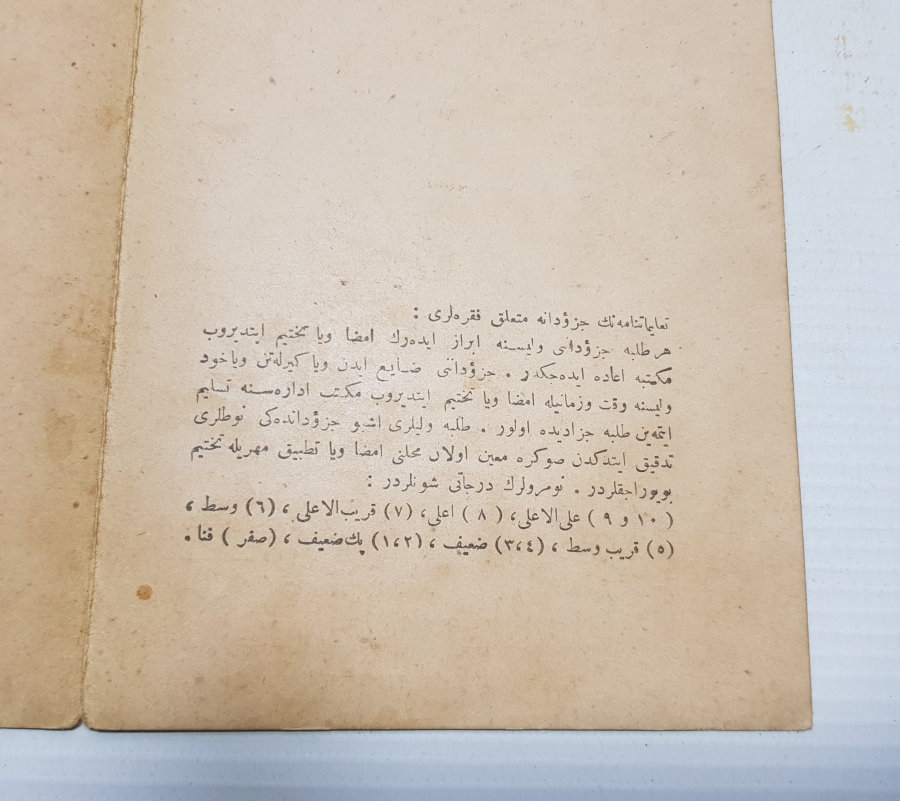 تعلیماتنامه‌نك جزؤدانه متعلق فقره‌لری :
هر طلبه جزؤدانی ولیسنه ابراز ایده‌رك امضا ویا تختیم ایتدیروب
مکتبه اعاده ایده‌جکدر . جزؤداننی ضایع ایدن ویا کیرله‌تن ویاخود
ولیسنه وقت وزمانیله امضا ویا تختیم ایتدیروب مکتب اداره‌سنه تسلیم
ایتمه‌ین طلبه جزادیده اولور . طلبه ولیلری اشبو جزؤدانده‌کی نوطلری
تدقیق ایتدکدن صوکره معین اولان محلنی امضا ویا تطبیق مهریله تختیم
بویوراجقلردر . نومرولرك درجاتی شونلردر :
( ١٠ و ٩ ) علی‌الاعلی، ( ٨ ) اعلی، (٧) قریب‌الاعلی ، (٦) وسط ،
(٥) قریب وسط ، (٣،٤) ضعیف ، (١،٢) پك‌ضعیف ، (صفر ) فنا .